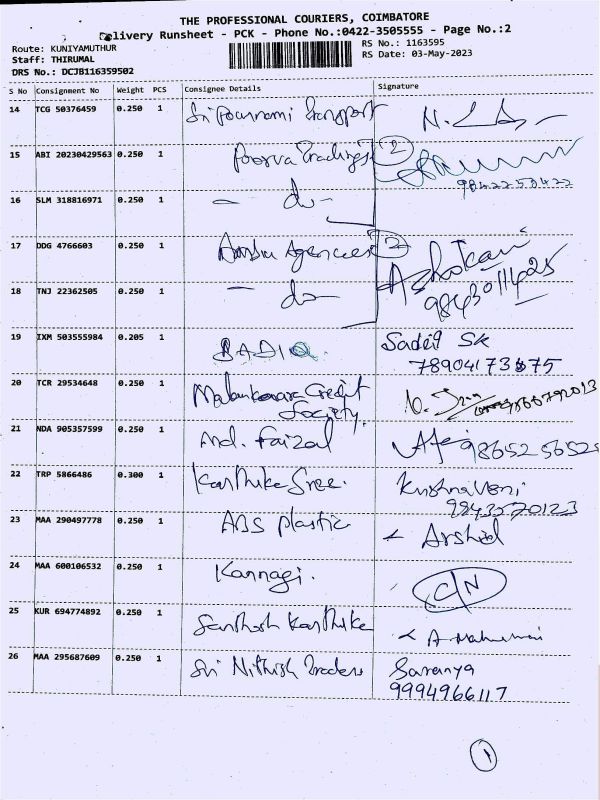 THE PROFESSIONAL COURIERS, COIMBATORE
Delivery Runsheet - PCK - Phone No.:0422-3505555 - Page No.:2
Route: KUNIYAMUTHUR
Staff: THIRUMAL
DRS No.: DCJB116359502
RS No.: 1163595
RS Date: 03-May-2023
S No Consignment No Weight PCS Consignee Details Signature
14 TCG 50376459 0.250 1 Sri Pournami Transport
15 ABI 20230429563 0.250 1 Poorva Tradings 2
9842250422
16 SLM 318816971 0.250 1 - do -
17 DDG 4766603 0.250 1 Ambu Agencies 2 Ashokan
9843011425
18 TNJ 22362505 0.250 1 - do -
19 IXM 503555984 0.205 1 BADIQ Sadeq SK
78904173875
20 TCR 29534648 0.250 1 Malankara Credit
Society.
21 NDA 905357599 0.250 1 Md. Faizal 9865256525
22 TRP 5866486 0.300 1 Karthika Sree. Krishnaveni
9843570123
23 MAA 290497778 0.250 1 ABS plastic Arshid
24 MAA 600106532 0.250 1 Kannagi. C/N
25 KUR 694774892 0.250 1 Santhosh Karthika
26 MAA 295687609 0.250 1 Sri Nithish Traders Saranya
9994966117
1